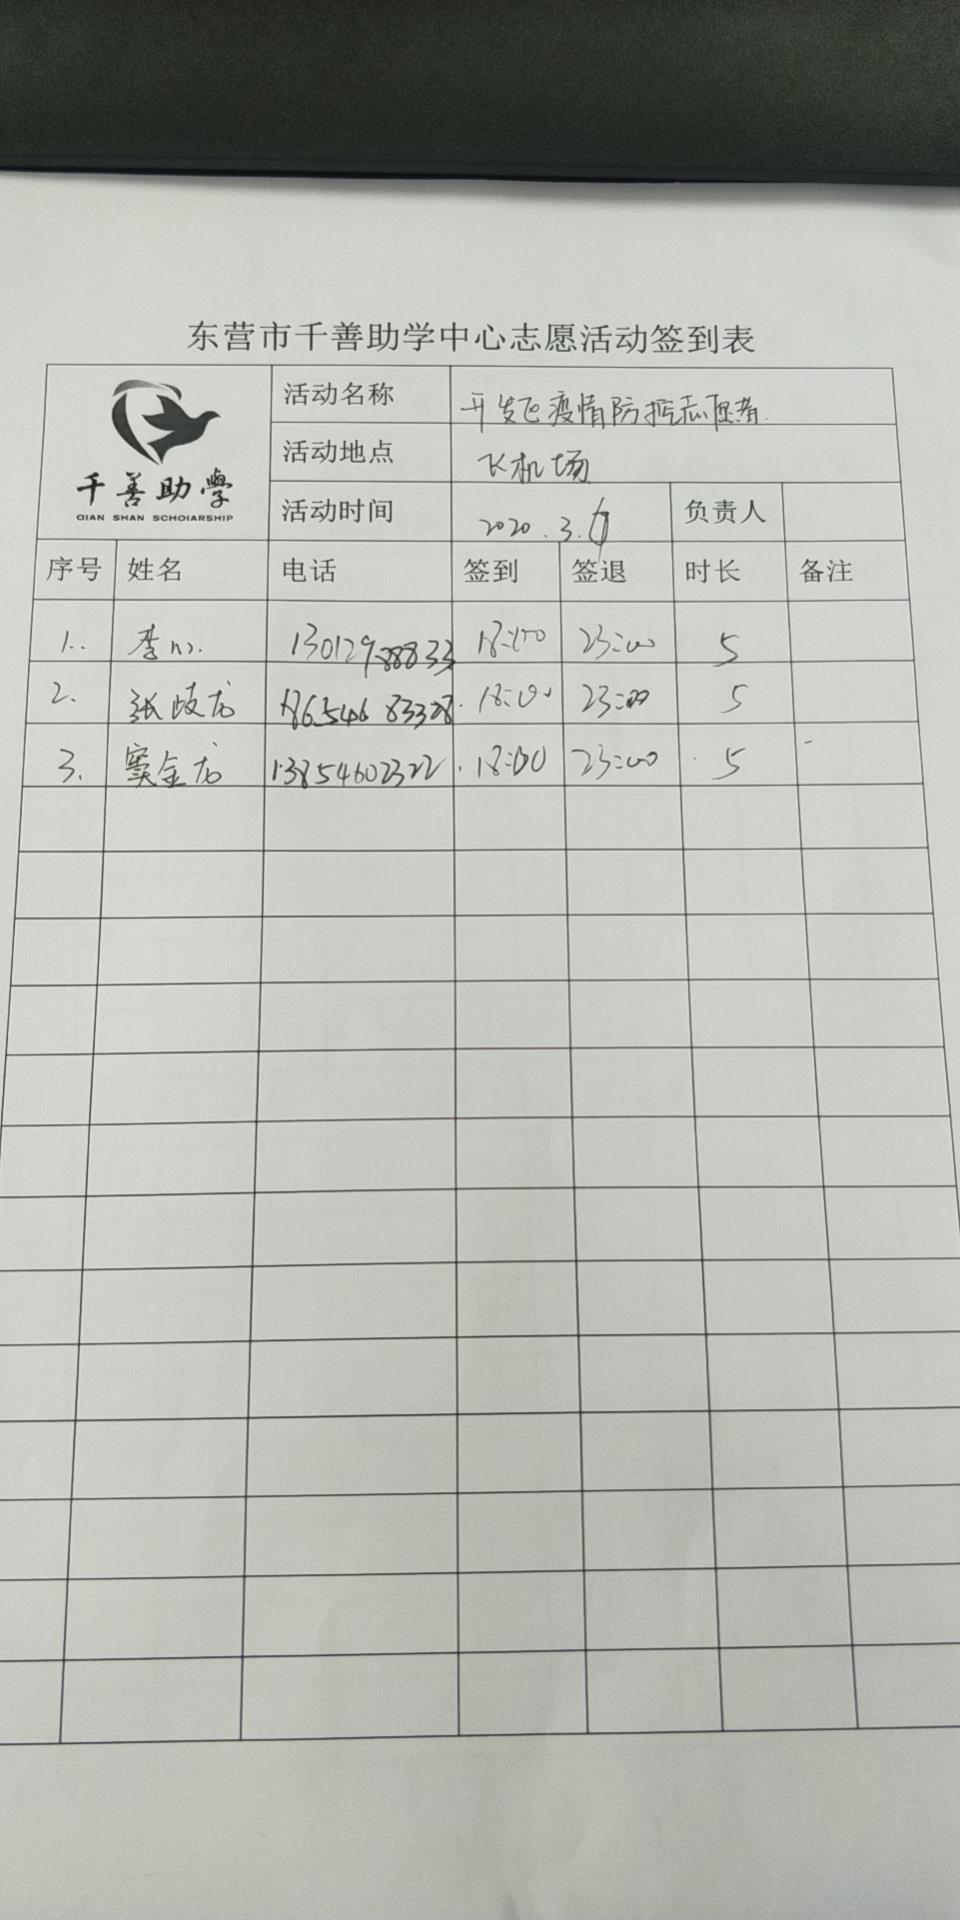 东营市千善助学中心志愿活动签到表
千善助學
QIAN SHAN SCHOIARSHIP
活动名称 开发区疫情防控志愿者
活动地点 飞机场
活动时间 2020.3. 负责人
序号 姓名 电话 签到 签退 时长 备注
1. 李 13012988833 18:00 23:00 5
2. 张岐龙 18654683328 18:00 23:00 5
3. 窦金龙 13854602322 18:00 23:00 5